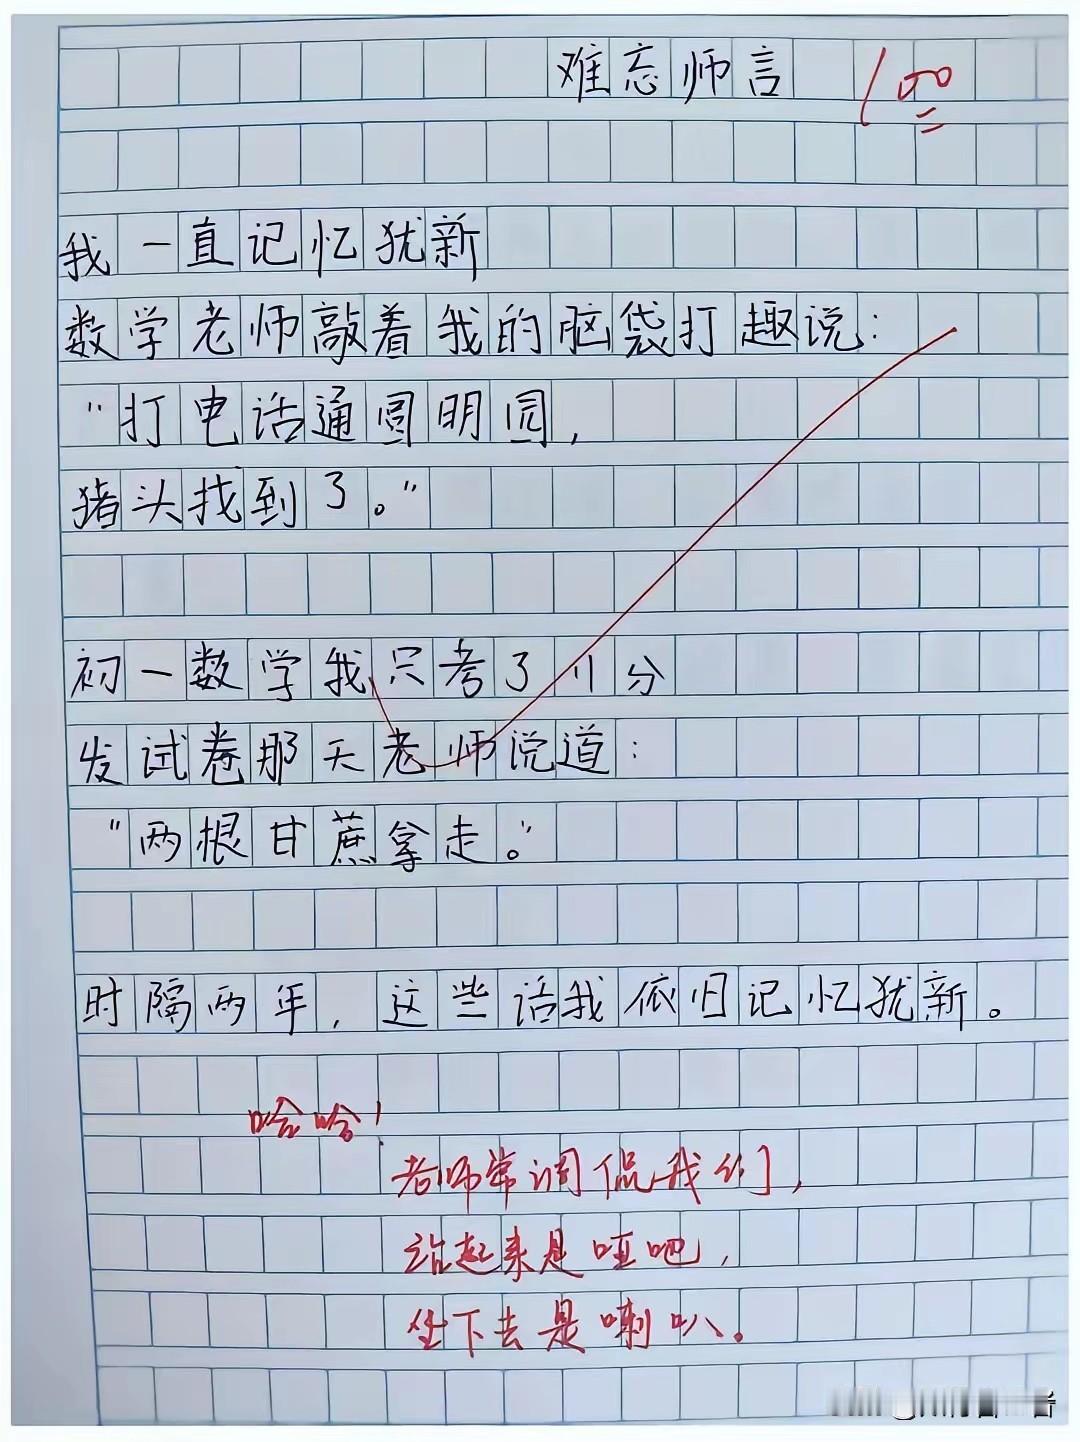 难忘师言 100
我一直记忆犹新
数学老师敲着我的脑袋打趣说:
"打电话通圆明园,
猪头找到了。"
初一数学我只考了11分
发试卷那天老师说道:
"两根甘蔗拿走。"
时隔两年,这些话我依旧记忆犹新。
哈哈!
老师常调侃我们,
站起来是哑吧,
坐下去是喇叭。